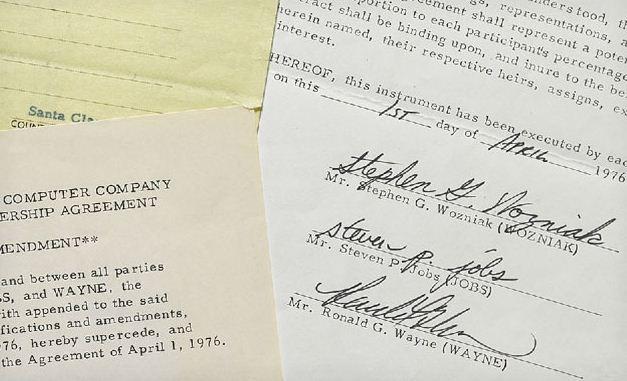 Santa Cla
COUN
COMPUTER COMPANY
ERSHIP AGREEMENT
MENDMENT**
and between all parties
BS, and WAYNE, the
ith appended to the said
fications and amendments,
76, hereby supercede, and
the Agreement of April 1, 1976.
gs, representations, a
eement shall represent a poten
portion to each participant's percentage
ract shall be binding upon, and inure to the be
herein named, their respective heirs, assigns, ex
interest.
HEREOF, this instrument has been executed by eac
on this 1ST day of APRIL 1976
Stephen G. Wozniak
Mr. Stephen G. Wozniak (WOZNIAK)
steven P. jobs
Mr. Steven P. Jobs (JOBS)
Mr. Ronald G. Wayne (WAYNE)